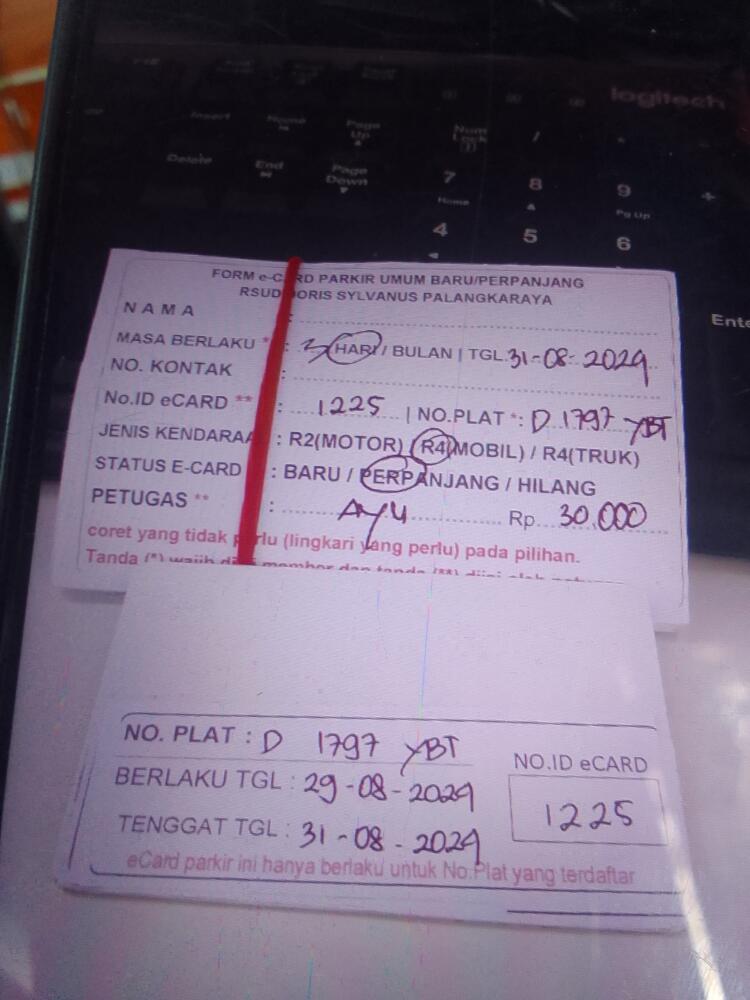 logitech
Insert Home Page Up Num Lock / *
Delete End Page Down 7 8 9 +
Home Pg Up
4 5 6
Ente
FORM e-CARD PARKIR UMUM BARU/PERPANJANG
RSUD DORIS SYLVANUS PALANGKARAYA
NAMA :
MASA BERLAKU * : 3 HARI / BULAN | TGL. 31-08-2024
NO. KONTAK :
No.ID eCARD ** : 1225 | NO.PLAT *: D 1797 YBT
JENIS KENDARAA : R2(MOTOR) / R4(MOBIL) / R4(TRUK)
STATUS E-CARD : BARU / PERPANJANG / HILANG
PETUGAS ** : AYU Rp. 30.000
coret yang tidak perlu (lingkari yang perlu) pada pilihan.
Tanda (*) wajib diisi member dan tanda (**) diisi oleh
NO. PLAT : D 1797 YBT
BERLAKU TGL : 29-08-2024
TENGGAT TGL : 31-08-2024
NO.ID eCARD
1225
eCard parkir ini hanya berlaku untuk No.Plat yang terdaftar